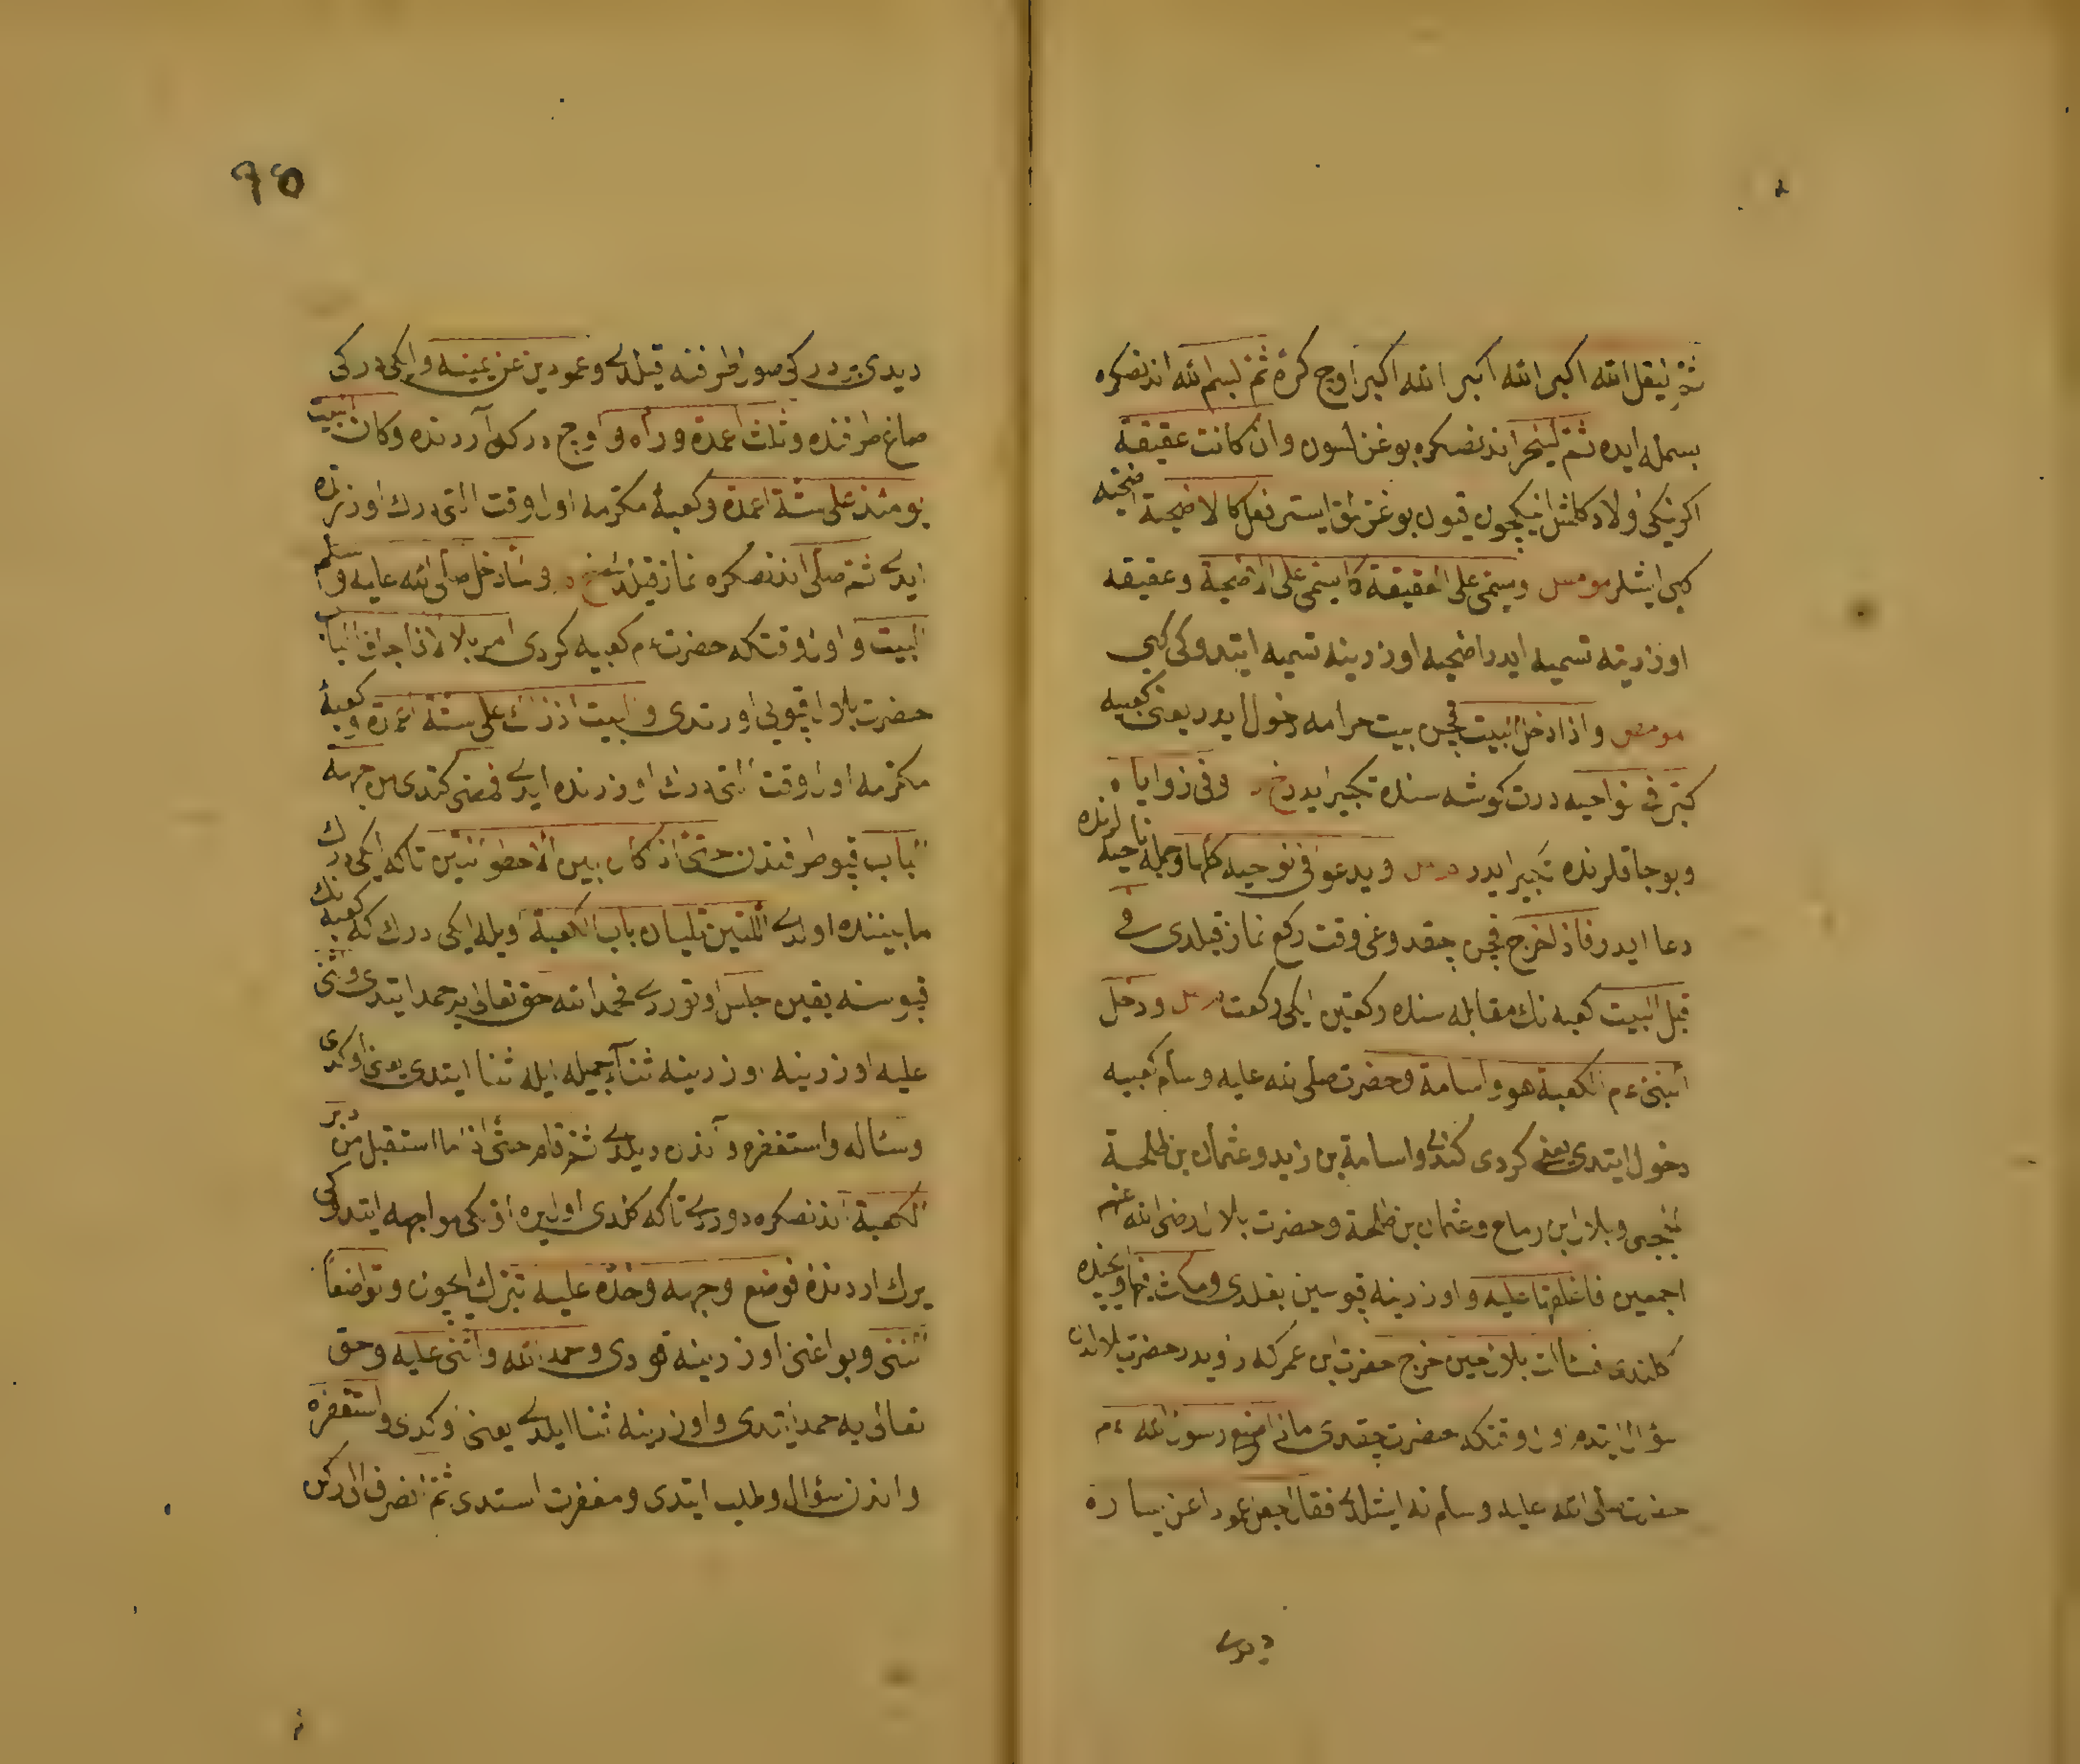 ثم ليقل الله اكبر الله اكبر الله اكبر اوج كرة ثم بسم الله اندنصكره
بسمله ايده ثم لينحر اندنصكره بوغزلسون وان كانت عقيقة
اكر ينكى اولاد كلمش ايكچون قيون بوغزلمق ايستر فعل كالاضحية اضحيه
كبى ايشلر مو مص ويسمى على العقيقة كما يسمى على الاضحية وعقيقه
اوزرينه تسميه ايدر اضحيه اوزرينه تسميه ايتدوكى كبى
مو مص واذا دخل البيت قچن بيت حرامه دخول ايدر يعنى كعبيه
كبر فى نواحيه درت كوشه سنده تكبير ايدر خ د وفى زواياه
وبوجاقلرنده تكبير ايدر ويدعو فى نوحيه كلها وجمله ناحيه لرنده
دعا ايدر فاذا خرج قچن چقدوغى وقت ركع نماز قيلدى فى
قبل البيت كعبه نك مقابله سنده ركعتين ايكى ركعت ودخل
النبى ءم الكعبة هو واسامة وحضرت صلى الله عليه وسلم كعبيه
دخول ايتدى يعنى كردى كندى واسامة بن زايد وعثمان بن طلحة
الحجبى وبلال بن رماح وعثمان بن طلحة وحضرت بلال رضى الله عنهم
اجمعين فاغلقها عليه واوزرينه قپوسين بغلدى ومكث فيها وايچنده
كلندى فسالت بلال حين خرج حضرت ابن عمر كه رويدر حضرت بلالدن
سؤال ايتدم اول وقتكه حضرت چقدى ماذا صنع رسول الله ءم
حضرت صلى الله عليه وسلم نه ايشلدى فقال جعل عمودا عن يساره
ديدى
٩٥
ديدى بر درك صول طرفنه قيلدى وعمودين عن يمينه وايكى دركى
صاغ طرفنده وثلث اعمدة وراه واوج درك آردنده وكان البيت
يومئذ على ستة اعمدة وكعبۀ مكرمه اول وقت التى درك اوزرنده
ايدى ثم صلى اندنصكره نماز قيلدى خ م ولما دخل صلى الله عليه وسلم
البيت واول وقتكه حضرت ءم كعبيه كردى امر بلالا فاجاف الباب
حضرت بلال قپويى اورتدى والبيت اذ ذاك على ستة اعمدة وكعبۀ
مكرمه اول وقت التى درك اوزرنده ايدى فمضى كتدى من جهة
الباب قپو طرفندن حتى اذا كان بين الاسطوانتين تاكه ايكى درك
مابيننده اولدى اللتين تليان باب الكعبة اويله ايكى درك كه كعبه نك
قپوسنه يقين جلس اوتوردى فحمد الله حق تعالى يه حمد ايتدى واثنى
عليه اوزرينه اوزرينه ثناء جميله ايله ثنا ايتدى يعنى اوكدى
وساله واستغفره وآندن ديلدى ثم قام حتى اذا ما استقبل من دبر
الكعبة اندنصكره دوردى تاكه كلدى اول يره اذ كى مواجهه ايتدوكى
يرك اردنده فوضع وجهه وخده عليه تبرك ايچون وتواضعاً
يننى وبو اغنى اوزرينه قودى وحمد الله واثنى عليه وحق
تعالى يه حمد ايتدى واوزرينه ثنا ايلدى يعنى اوكدى واستغفره
واندن سؤال وطلب ايتدى ومغفرت استدى ثم انصرف الى ركن